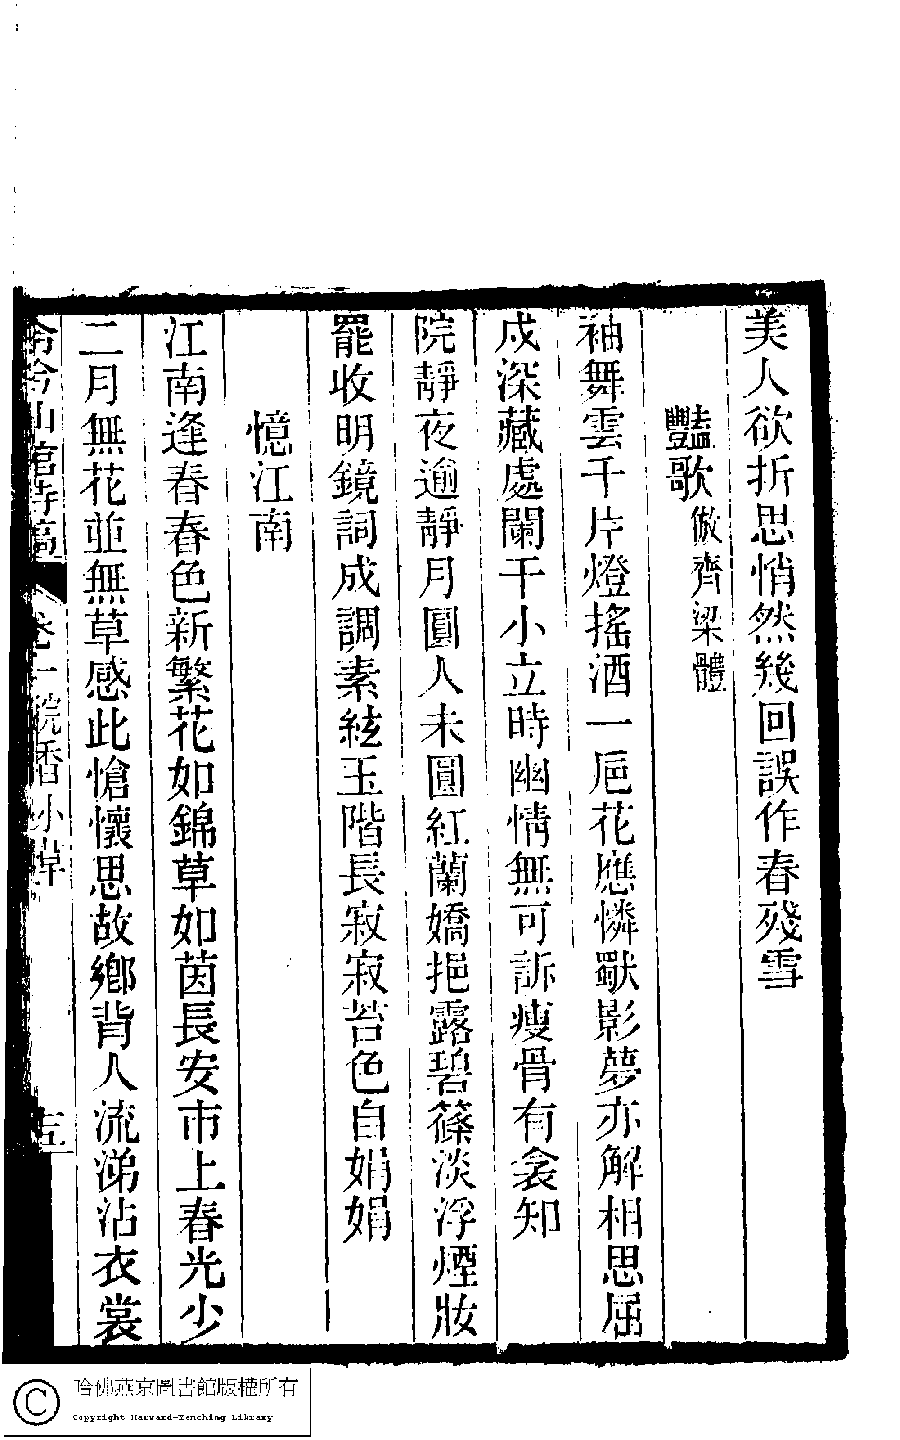 美人欲折思悄然幾回誤作春殘雪
豔歌倣齊梁體
袖舞雲千片燈搖酒一巵花應憐獸影夢亦解相思屈
戍深藏處闌干小立時幽情無可訴瘦骨有衾知
院靜夜逾靜月圓人未圓紅蘭嬌挹露碧篠淡浮煙妝
罷收明鏡詞成調素絃玉階長寂寂苔色自娟娟
憶江南
江南逢春春色新繁花如錦草如茵長安市上春光少
二月無花並無草感此愴懷思故鄉背人流涕沾衣裳
山館詩
卷一 香小
哈佛燕京圖書館版權所有
Copyright Harvard-Yenching Library